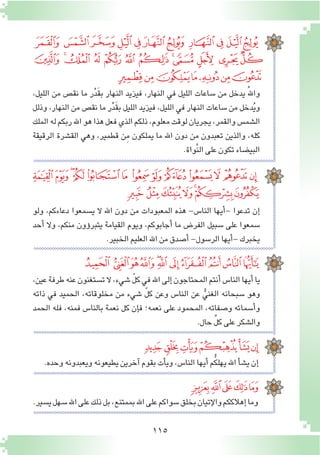 يُولِجُ ٱلَّيۡلَ فِي ٱلنَّهَارِ وَيُولِجُ ٱلنَّهَارَ فِي ٱلَّيۡلِ وَسَخَّرَ ٱلشَّمۡسَ وَٱلۡقَمَرَ
كُلّٞ يَجۡرِي لِأَجَلٖ مُّسَمّٗىۚ ذَٰلِكُمُ ٱللَّهُ رَبُّكُمۡ لَهُ ٱلۡمُلۡكُۚ وَٱلَّذِينَ
تَدۡعُونَ مِن دُونِهِۦ مَا يَمۡلِكُونَ مِن قِطۡمِيرٍ
واللهُ يدخل من ساعات الليل في النهار، فيزيد النهار بقَدْر ما نقص من الليل،
ويُدخل من ساعات النهار في الليل، فيزيد الليل بقَدْر ما نقص من النهار، وذلل
الشمس والقمر، يجريان لوقت معلوم، ذلكم الذي فعل هذا هو الله ربكم له الملك
كله، والذين تعبدون من دون الله ما يملكون مِن قطمير، وهي القشرة الرقيقة
البيضاء تكون على النَّواة.
إِن تَدۡعُوهُمۡ لَا يَسۡمَعُواْ دُعَآءَكُمۡ وَلَوۡ سَمِعُواْ مَا ٱسۡتَجَابُواْ لَكُمۡۖ وَيَوۡمَ ٱلۡقِيَٰمَةِ
يَكۡفُرُونَ بِشِرۡكِكُمۡۚ وَلَا يُنَبِّئُكَ مِثۡلُ خَبِيرٖ
إن تدعوا -أيها الناس- هذه المعبودات من دون الله لا يسمعوا دعاءكم، ولو
سمعوا على سبيل الفرض ما أجابوكم، ويوم القيامة يتبرؤون منكم، ولا أحد
يخبرك -أيها الرسول- أصدق من الله العليم الخبير.
يَٰٓأَيُّهَا ٱلنَّاسُ أَنتُمُ ٱلۡفُقَرَآءُ إِلَى ٱللَّهِۖ وَٱللَّهُ هُوَ ٱلۡغَنِيُّ ٱلۡحَمِيدُ
يا أيها الناس أنتم المحتاجون إلى الله في كل شيء، لا تستغنون عنه طرفة عين،
وهو سبحانه الغنيُّ عن الناس وعن كل شيء من مخلوقاته، الحميد في ذاته
وأسمائه وصفاته، المحمود على نعمه؛ فإن كل نعمة بالناس فمنه، فله الحمد
والشكر على كلِّ حال.
إِن يَشَأۡ يُذۡهِبۡكُمۡ وَيَأۡتِ بِخَلۡقٖ جَدِيدٖ
إن يشأ الله يهلكُّم أيها الناس، ويأت بقوم آخرين يطيعونه ويعبدونه وحده.
وَمَا ذَٰلِكَ عَلَى ٱللَّهِ بِعَزِيزٖ
وما إهلاككم والإتيان بخلق سواكم على الله بممتنع، بل ذلك على الله سهل يسير.
١١٥